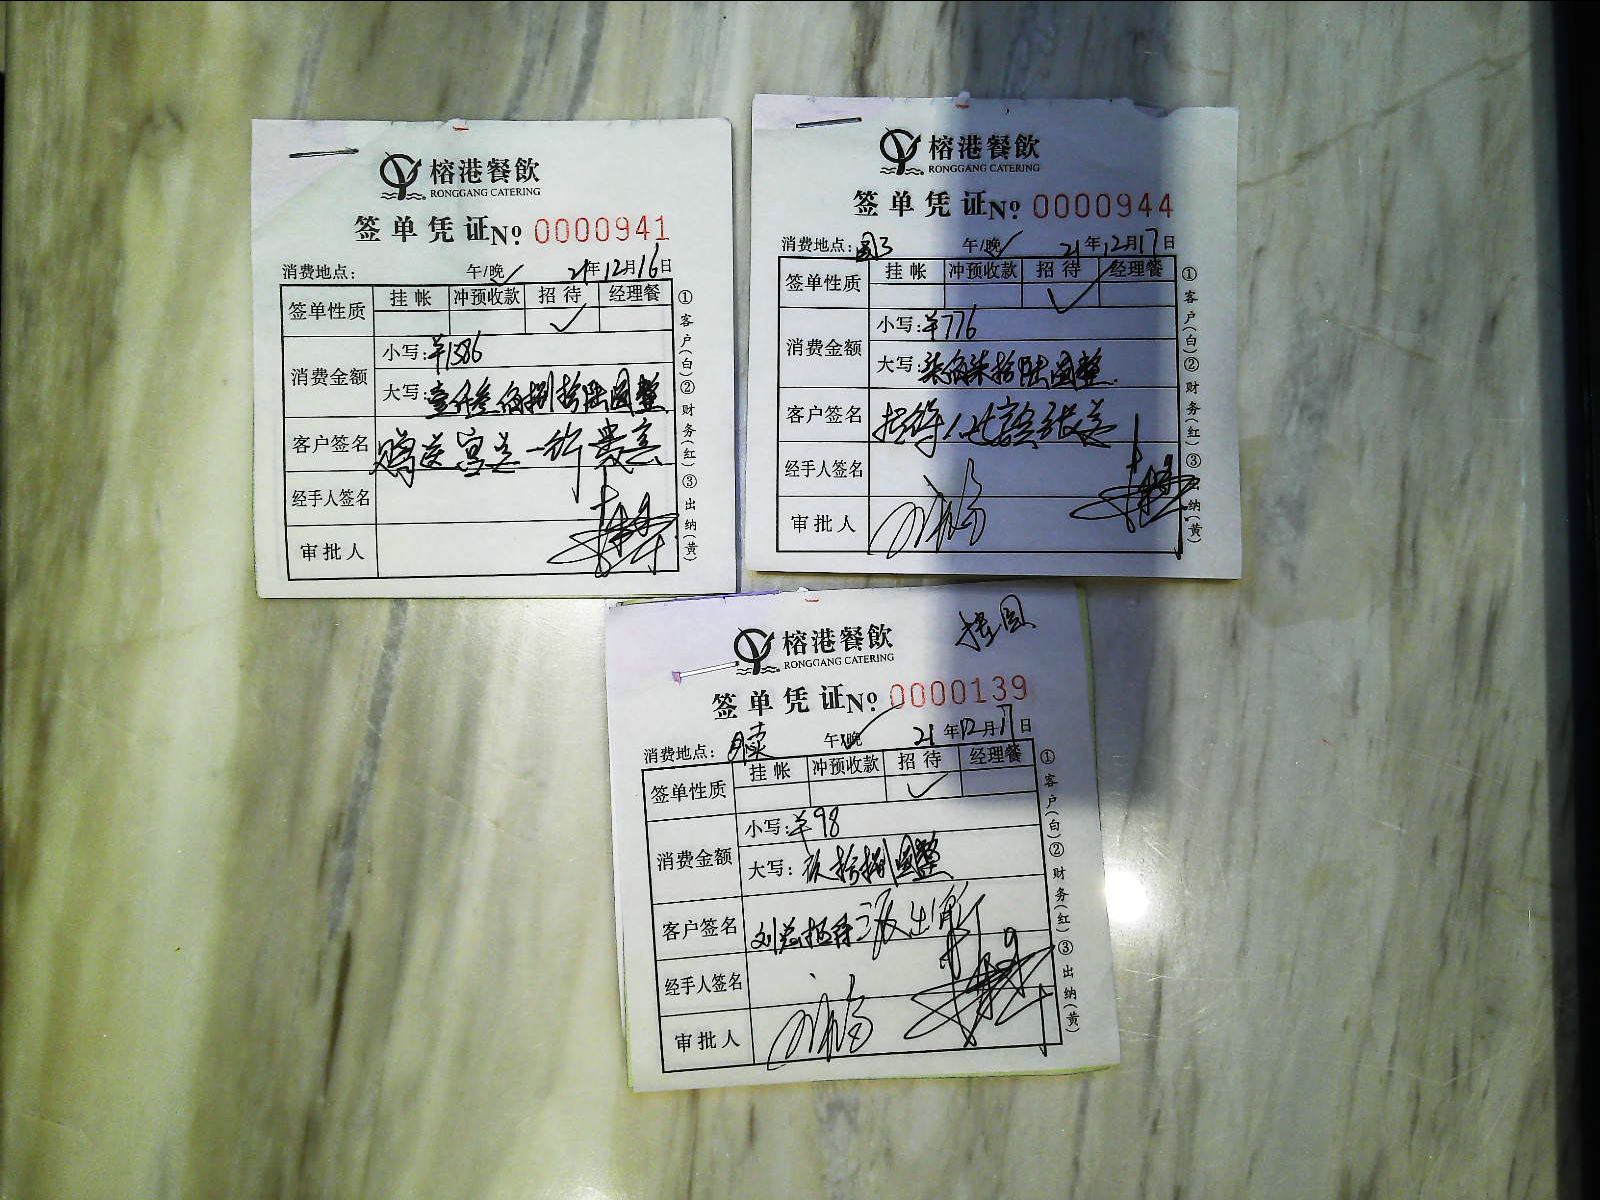 榕港餐飲
RONGGANG CATERING
签单凭证 Nº 0000941
消费地点： 午/晚✓ 21年12月16日
签单性质 挂帐 冲预收款 招待 经理餐
✓
消费金额 小写：¥1386
大写：壹仟叁佰捌拾陆圆整
客户签名 赠送
经手人签名
审批人
①客户(白)②财务(红)③出纳(黄)
榕港餐飲
RONGGANG CATERING
签单凭证 Nº 0000944
消费地点： 午/晚✓ 21年12月17日
签单性质 挂帐 冲预收款 招待 经理餐
✓
消费金额 小写：¥776
大写：柒佰柒拾陆圆整
客户签名 招待
经手人签名
审批人
①客户(白)②财务(红)③出纳(黄)
榕港餐飲
RONGGANG CATERING
签单凭证 Nº 0000139
消费地点： 午/晚✓ 21年12月17日
签单性质 挂帐 冲预收款 招待 经理餐
✓
消费金额 小写：¥98
大写：玖拾捌圆整
客户签名 刘总招待派出所
经手人签名
审批人
①客户(白)②财务(红)③出纳(黄)